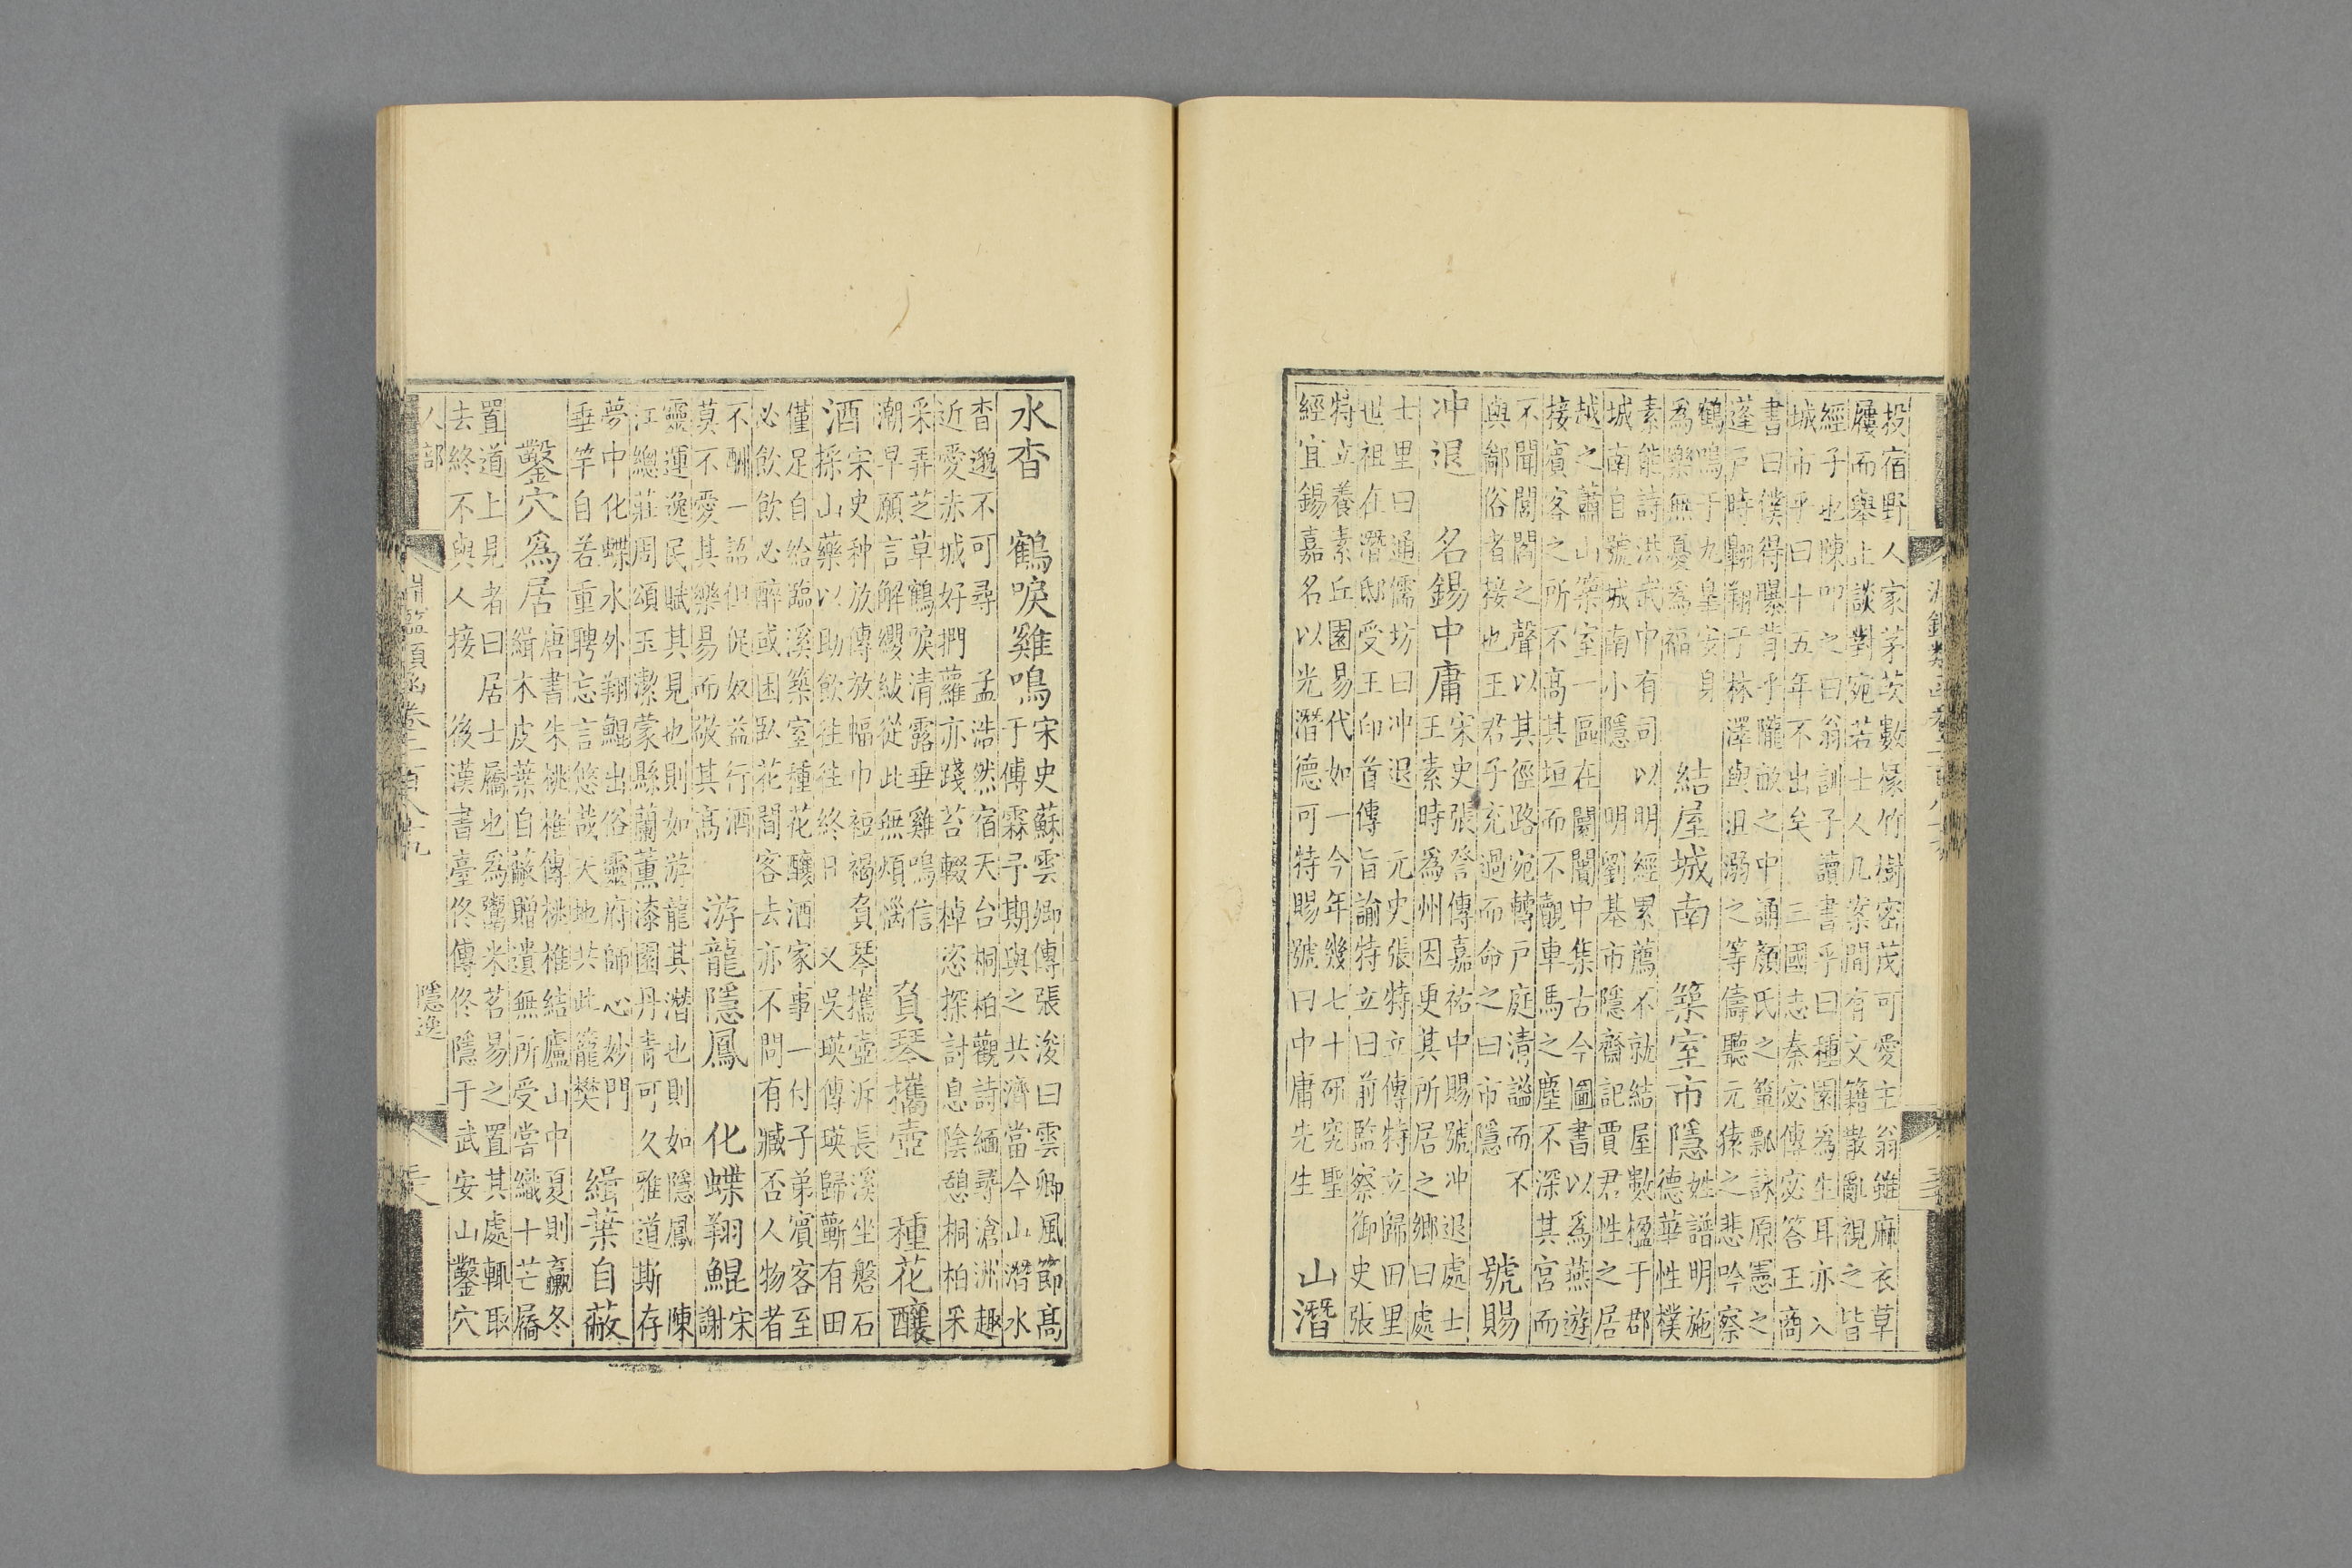 淵鑑類函卷二百八十九
投宿野人家茅茨數椽竹樹密茂可愛主翁雖麻衣草
屨而舉止談對宛若士人几案間有文籍散亂視之皆
經子也陳叩之曰翁訓子讀書乎曰種園爲生耳亦入
城市乎曰十五年不出矣 三國志秦宓傳宓答王商
書曰僕得曝背乎隴畝之中誦顏氏之簞瓢詠原憲之
蓬戶時翱翔于林澤與沮溺之等儔聽元猿之悲吟察
鶴鳴于九臯安身
爲樂無憂爲福
結屋城南 築室市隱
姓譜明施
德華性樸
素能詩洪武中有司以明經累薦不就結屋數楹于郡
城南自號城南小隱 明劉基市隱齋記賈君性之居
越之蕭山築室一區在闤闠中集古今圖書以爲燕遊
接賓客之所不高其垣而不覿車馬之塵不深其宮而
不聞閭閻之聲以其徑路宛轉戶庭清謐而不
與鄙俗者接也王君子充過而命之曰市隱
號賜
冲退 名錫中庸
宋史張詧傳嘉祐中賜號冲退處士
王素時爲州因更其所居之鄉曰處
士里曰通儒坊曰冲退 元史張特立傳特立歸田里
世祖在潛邸受王印首傳旨諭特立曰前監察御史張
特立養素丘園易代如一今年幾七十研究聖
經宜錫嘉名以光潛德可特賜號曰中庸先生
山潛
水杳 鶴唳雞鳴
宋史蘇雲卿傳張浚曰雲卿風節高
于傅霖予期與之共濟當今山潛水
杳邈不可尋 孟浩然宿天台桐柏觀詩緬尋滄洲趣
近愛赤城好捫蘿亦踐苔輟棹恣探討息陰憩桐柏采
采弄芝草鶴唳清露垂雞鳴信
潮早願言解纓紱從此無煩惱
負琴攜壺 種花釀
酒
宋史种放傳放幅巾裋褐負琴攜壺泝長溪坐磐石
採山藥以助飲往往終日 又吳瑛傳瑛歸蘄有田
僅足自給臨溪築室種花釀酒家事一付子弟賓客至
必飲飲必醉或困臥花間客去亦不問有臧否人物者
不酬一語但促奴益行酒
莫不愛其樂易而敬其高
游龍隱鳳 化蝶翔鯤
宋
謝
靈運逸民賦其見也則如游龍其潛也則如隱鳳 陳
江總莊周頌玉潔蒙縣蘭薰漆園丹青可久雅道斯存
夢中化蝶水外翔鯤出俗靈府師心妙門
垂竿自若重聘忘言悠哉天地共此籠樊
緝葉自蔽
鑿穴爲居
唐書朱桃椎傳桃椎結廬山中夏則臝冬
緝木皮葉自蔽贈遺無所受嘗織十芒屩
置道上見者曰居士屩也爲鬻米茗易之置其處輒取
去終不與人接 後漢書臺佟傳佟隱于武安山鑿穴
人部 淵鑑類函卷二百八十九 隱逸